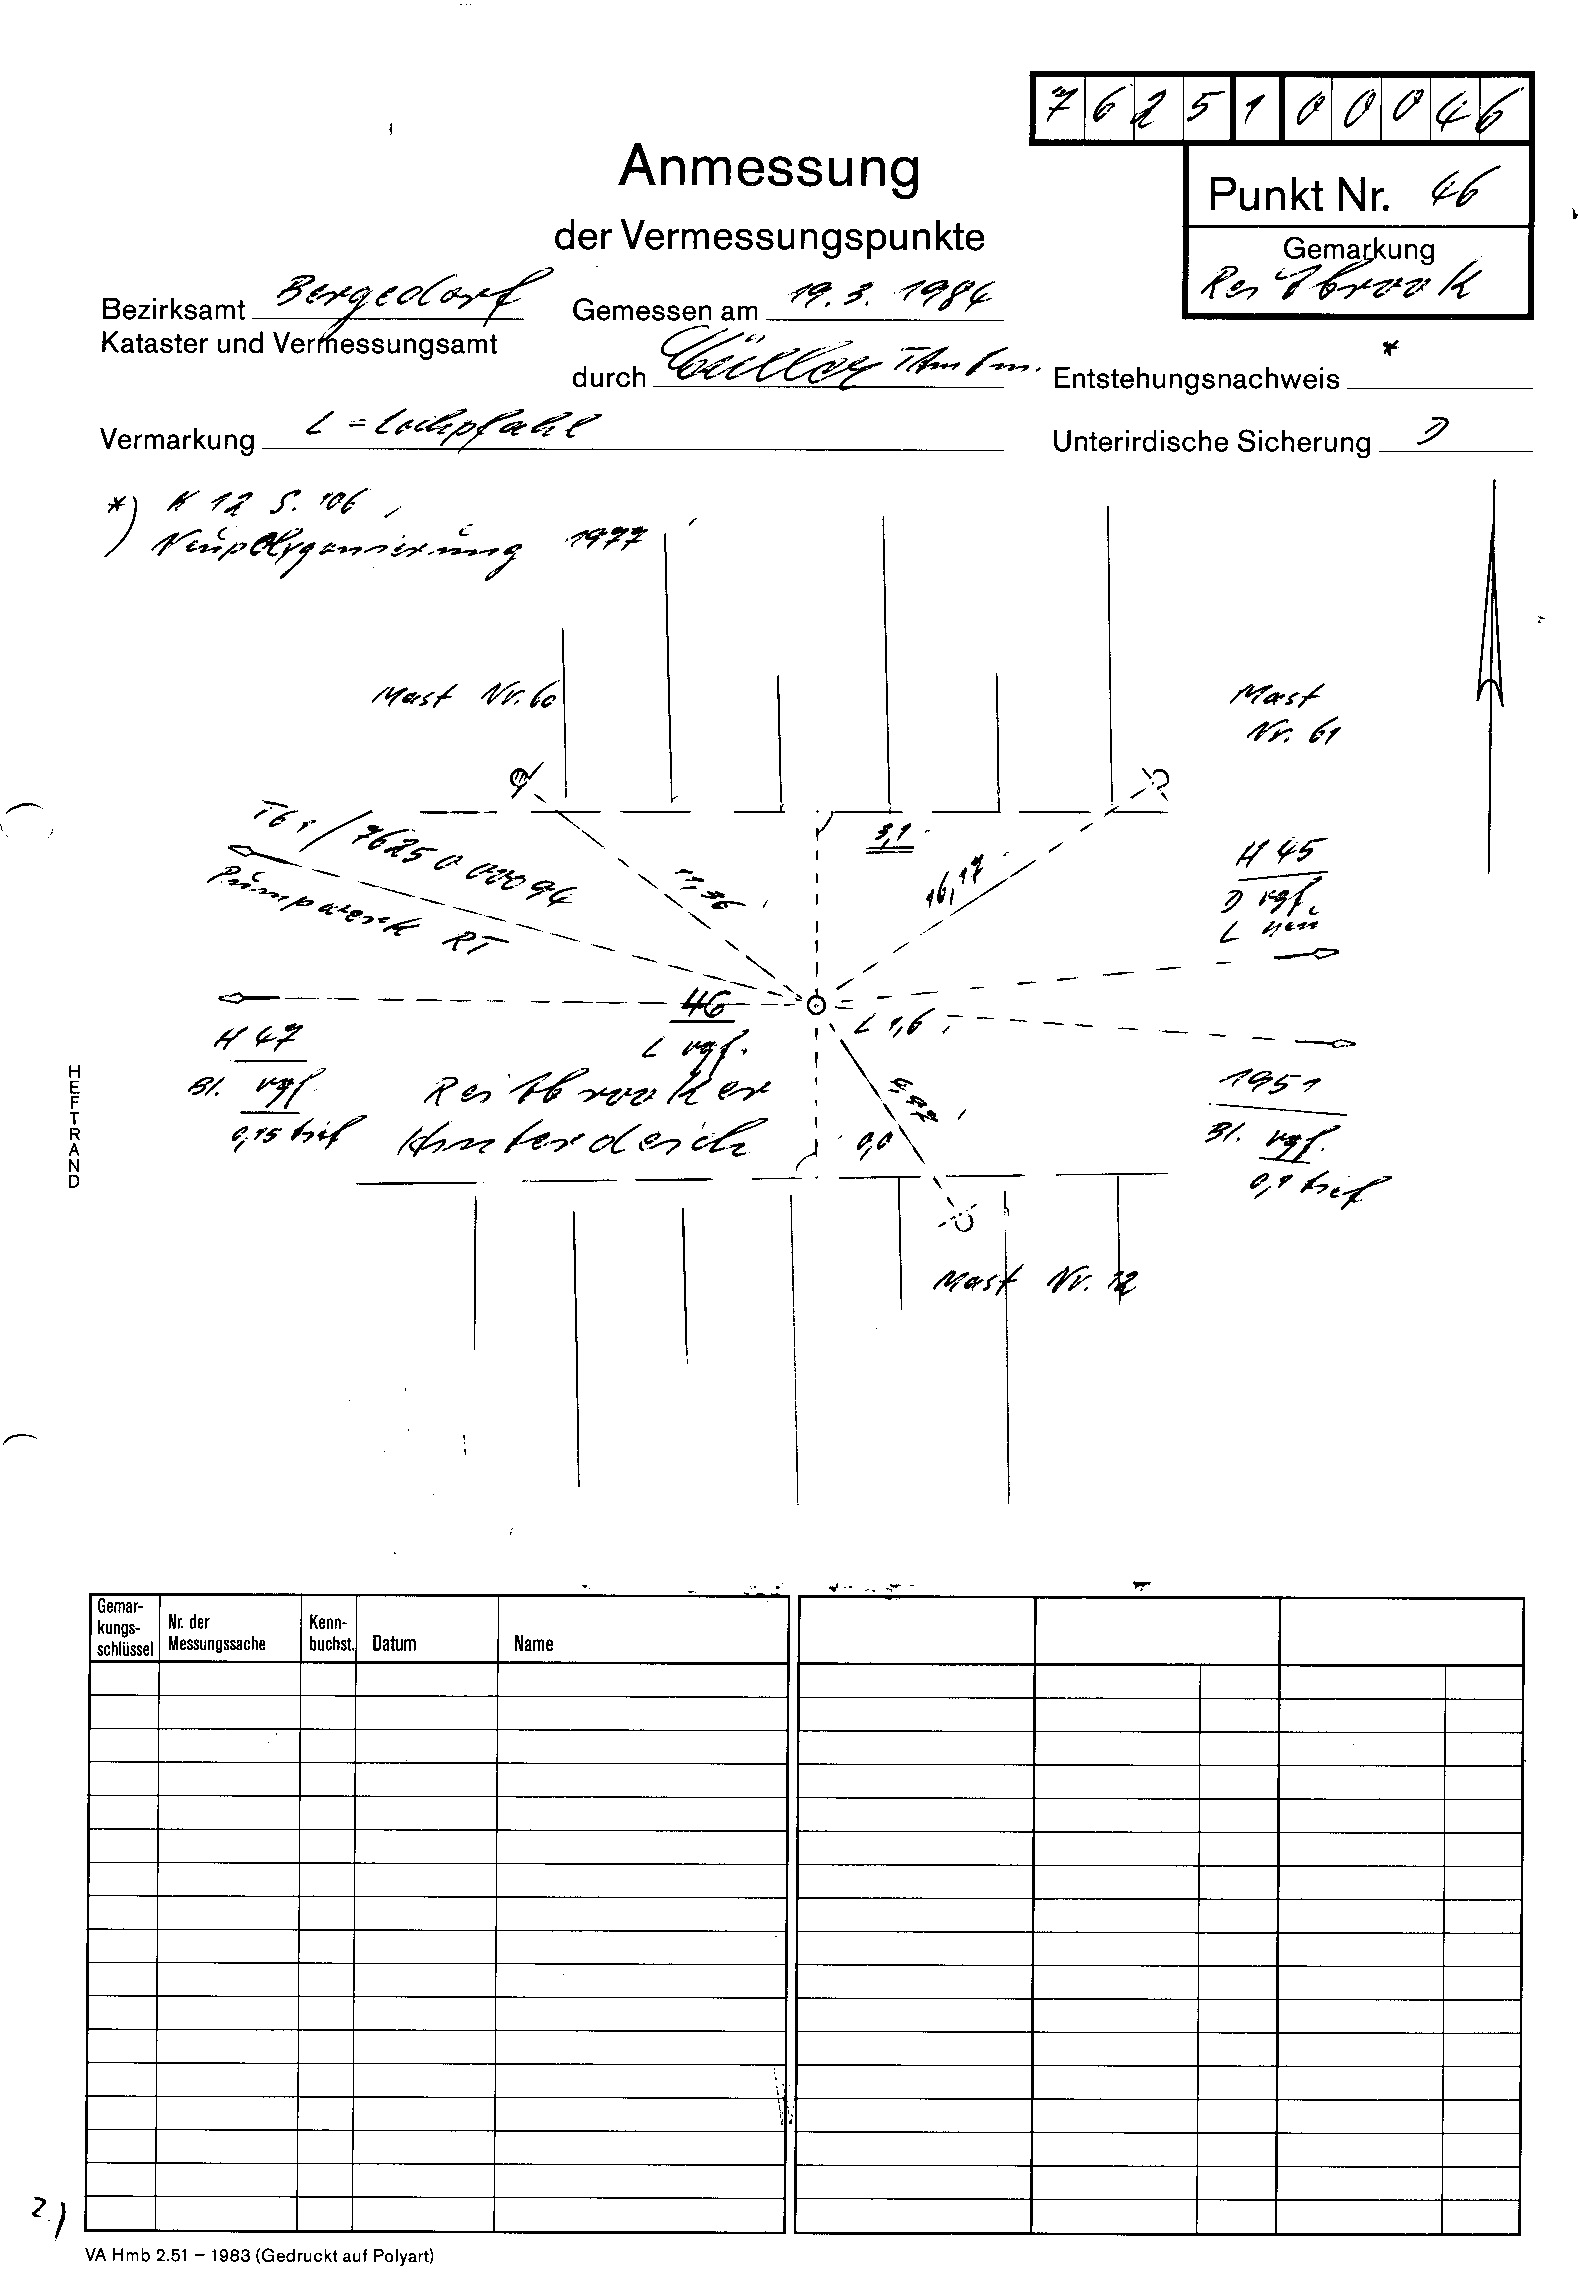 7 6 2 5 1 0 0 0 4 6
Anmessung
der Vermessungspunkte
Punkt Nr. 46
Gemarkung
Reitbrook
Bezirksamt Bergedorf
Kataster und Vermessungsamt
Gemessen am 19.3.1984
durch
Entstehungsnachweis *
Vermarkung L = Lochpfahl
Unterirdische Sicherung D
*) K 12 S. 106,
Neupolygonierung 1977
Mast Nr. 60
Mast
Nr. 61
76250 00094
Pumpwerk RT
3,1
16,17
H 45
D vgf.
L neu
46
L vgf.
L 1,6
H 47
Bl. vgf.
0,15 tief
Reitbrooker
Hinterdeich
9,97
0,0
1951
Bl. vgf.
0,1 tief
Mast Nr. 12
HEFTRAND
Gemar-
kungs-
schlüssel
Nr. der
Messungssache
Kenn-
buchst.
Datum
Name
2.)
VA Hmb 2.51 – 1983 (Gedruckt auf Polyart)